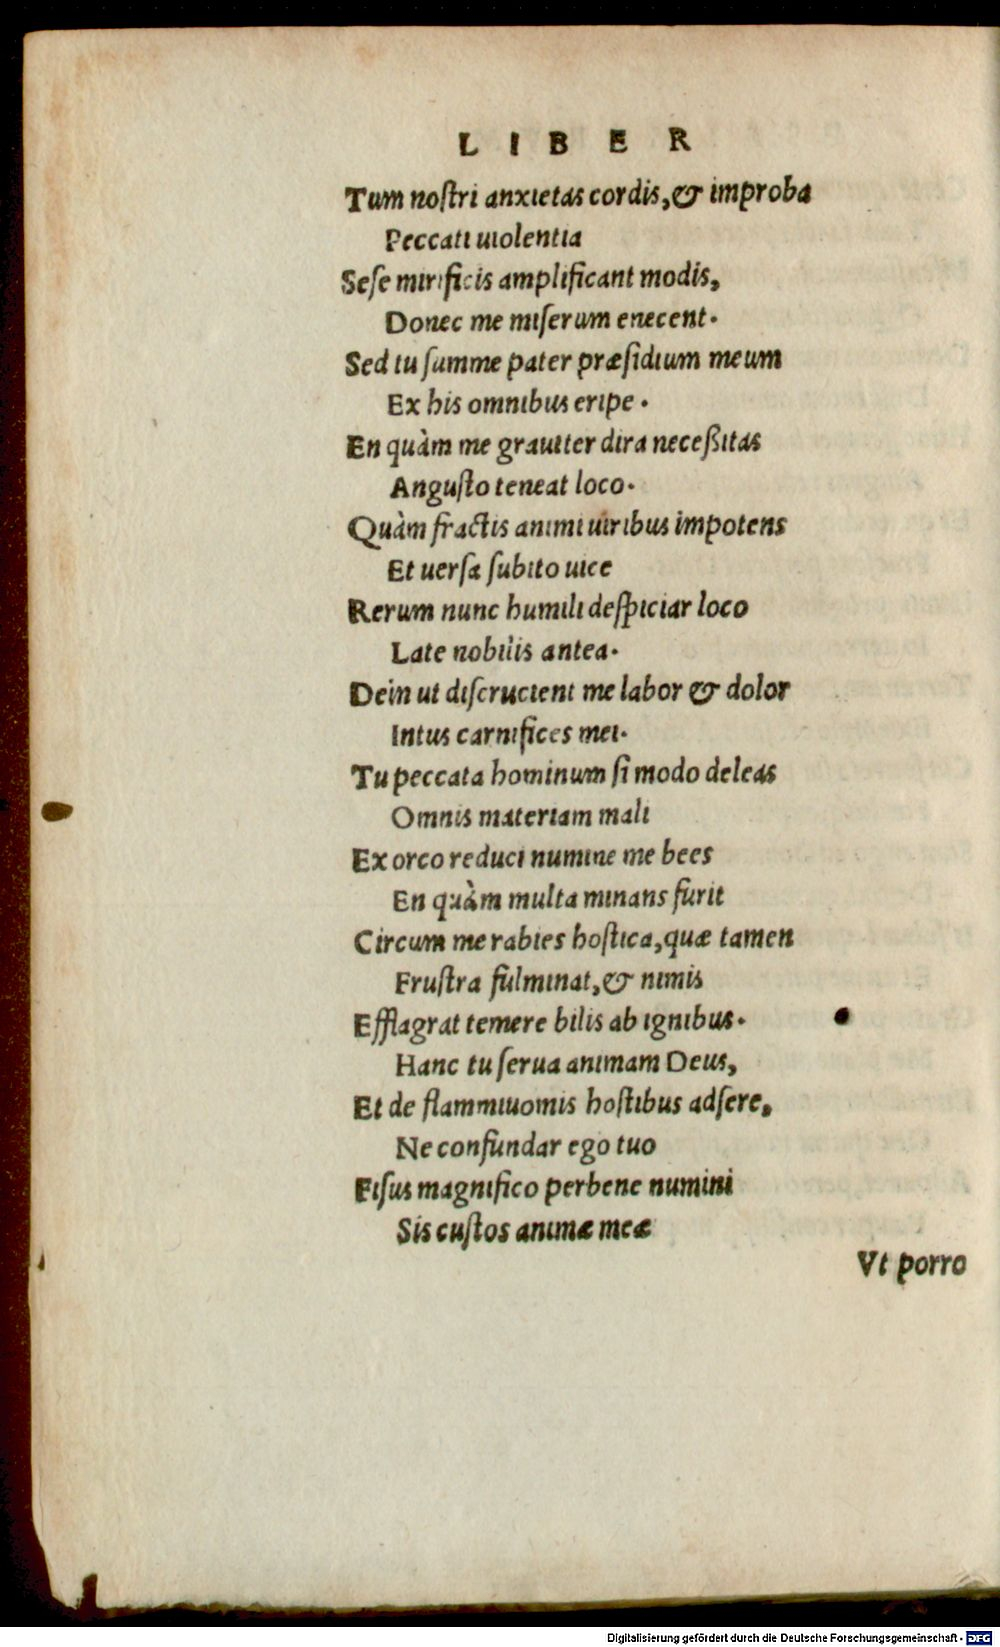 LIBER
Tum noſtri anxietas cordis, & improba
Peccati uiolentia
Seſe mirificis amplificant modis,
Donec me miſerum enecent.
Sed tu ſumme pater præſidium meum
Ex his omnibus eripe.
En quàm me grauiter dira neceßitas
Anguſto teneat loco.
Quàm fractis animi uiribus impotens
Et uerſa ſubito uice
Rerum nunc humili deſpiciar loco
Late nobilis antea.
Dein ut diſcrucient me labor & dolor
Intus carnifices mei.
Tu peccata hominum ſi modo deleas
Omnis materiam mali
Ex orco reduci numine me bees
En quàm multa minans furit
Circum me rabies hoſtica, quæ tamen
Fruſtra fulminat, & nimis
Efflagrat temere bilis ab ignibus.
Hanc tu ſerua animam Deus,
Et de flammiuomis hoſtibus adſere,
Ne confundar ego tuo
Fiſus magnifico perbene numini
Sis cuſtos animæ meæ
Vt porro
Digitalisierung gefördert durch die Deutsche Forschungsgemeinschaft - DFG